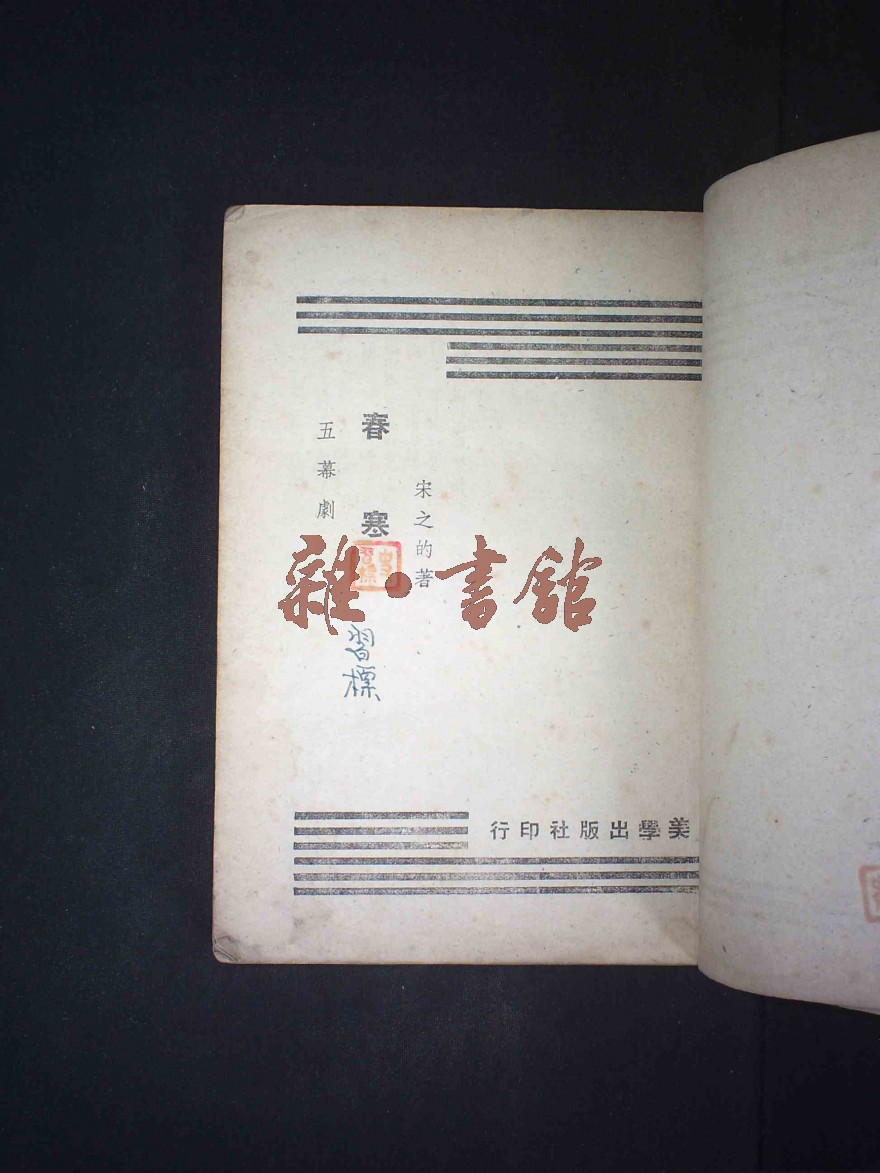 宋之的著
春寒
五幕劇
習標
美學出版社印行
雜·書館